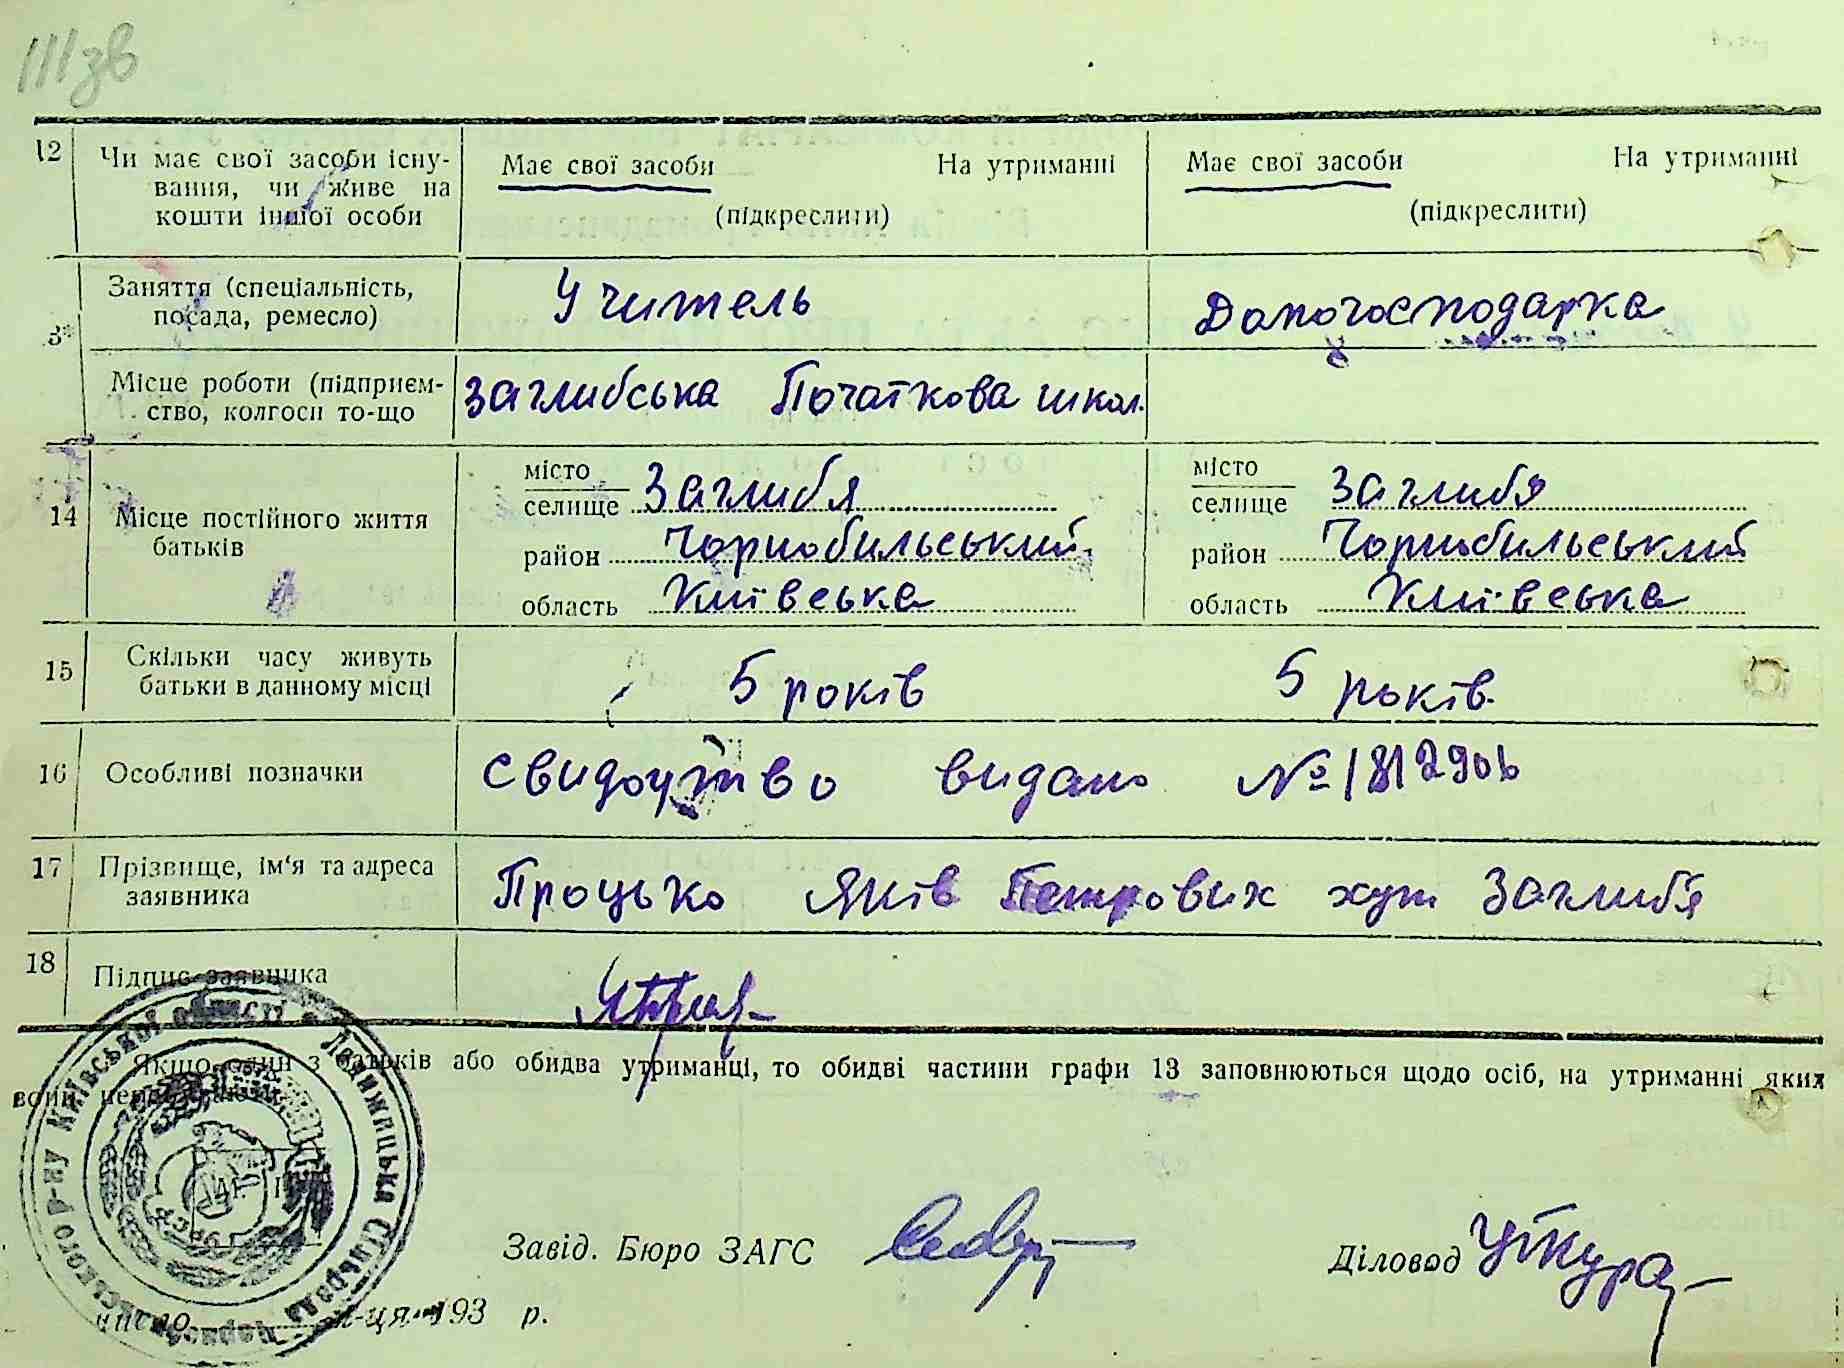 111 зв
12 Чи має свої засоби існу-
вання, чи живе на
кошти іншої особи
Має свої засоби На утриманні
(підкреслити)
Має свої засоби На утриманні
(підкреслити)
Заняття (спеціальність,
посада, ремесло)
Учитель
Домогосподарка
Місце роботи (підприєм-
ство, колгосп то-що
Заглибська Початкова школ.
14 Місце постійного життя
батьків
місто
селище Заглибя
район Чорнобильський
область Київська
місто
селище Заглибя
район Чорнобильський
область Київська
15 Скільки часу живуть
батьки в данному місці
5 років 5 років
16 Особливі позначки
Свидоцтво видано №
17 Прізвище, ім‘я та адреса
заявника
Процько Яків Петрович хут Заглиб'я
18 Підпис заявника
Якщо один з батьків або обидва утриманці, то обидві частини графи 13 заповнюються щодо осіб, на утриманні яких
вони
Завід. Бюро ЗАГС
Діловод
число м-ця 193 р.
Київської області
Сільрада